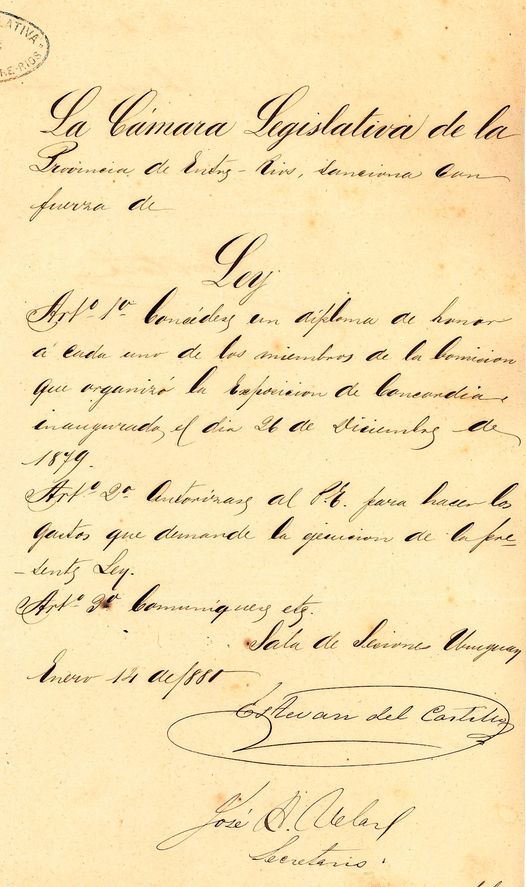 LATIVA"
RE-RIOS
La Cámara Legislativa de la
Provincia de Entre-Rios, sanciona con
fuerza de
Ley
Artº 1º Concédese un diploma de honor
á cada uno de los miembros de la Comision
que organizó la Exposicion de Concordia,
inaugurada el dia 26 de Diciembre de
1879.
Artº 2º Autorízase al P.E. para hacer los
gastos que demande la ejecucion de la pre-
-sente Ley.
Artº 3º Comuníquese etc.
Sala de Sesiones Uruguay
Enero 14 de 1880
Estevan del Castillo
José A.
Secretario.